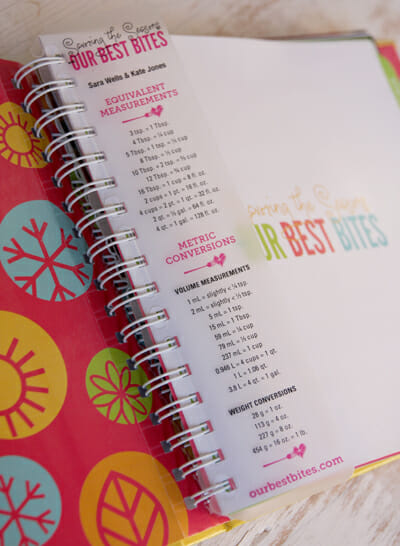 Savoring the Seasons
OUR BEST BITES
Sara Wells & Kate Jones
EQUIVALENT
MEASUREMENTS
3 tsp. = 1 Tbsp.
4 Tbsp. = ¼ cup
5 Tbsp. + 1 tsp. = ⅓ cup
8 Tbsp. = ½ cup
10 Tbsp. + 2 tsp. = ⅔ cup
12 Tbsp. = ¾ cup
16 Tbsp. = 1 cup = 8 fl. oz.
2 cups = 1 pt. = 16 fl. oz.
4 cups = 2 pt. = 1 qt. = 32 fl. oz.
2 qt. = ½ gal. = 64 fl. oz.
4 qt. = 1 gal. = 128 fl. oz.
METRIC
CONVERSIONS
VOLUME MEASUREMENTS
1 mL = slightly < ¼ tsp.
2 mL = slightly < ½ tsp.
5 mL = 1 tsp.
15 mL = 1 Tbsp.
59 mL = ¼ cup
79 mL = ⅓ cup
237 mL = 1 cup
0.946 L = 4 cups = 1 qt.
1 L = 1.06 qt.
3.8 L = 4 qt. = 1 gal.
WEIGHT CONVERSIONS
28 g = 1 oz.
113 g = 4 oz.
227 g = 8 oz.
454 g = 16 oz. = 1 lb.
ourbestbites.com
Savoring the Seasons
OUR BEST BITES